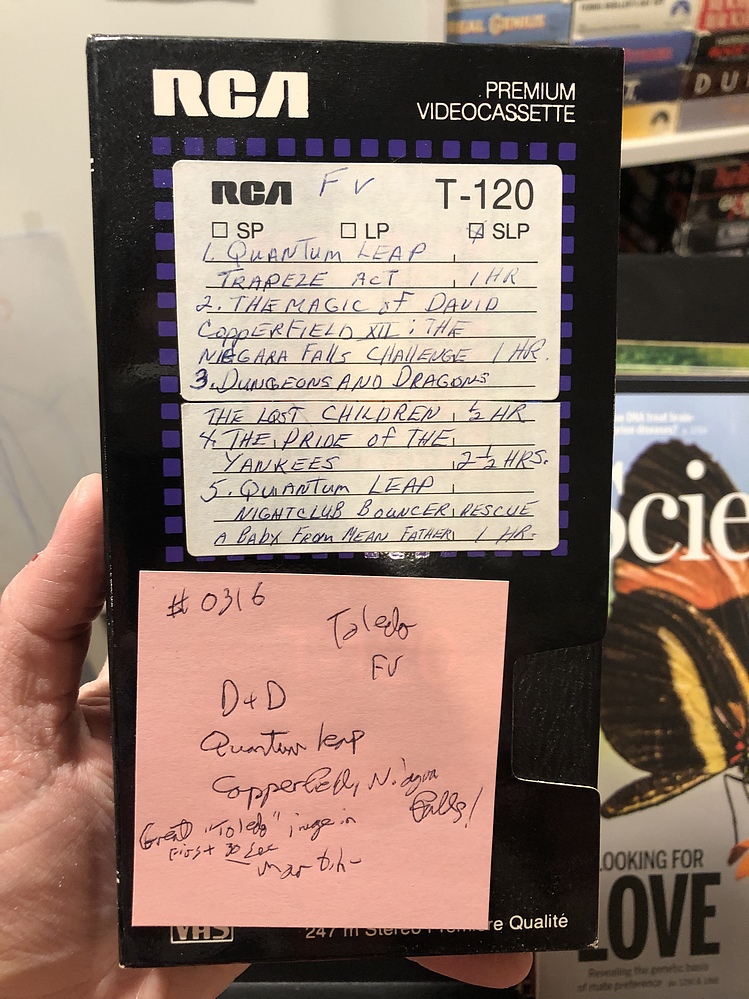 RCA
PREMIUM
VIDEOCASSETTE
RCA FV T-120
SP LP SLP
1. QUANTUM LEAP
TRAPEZE ACT 1 HR
2. THE MAGIC of DAVID
COPPERFIELD XII: THE
NIEGARA FALLS CHALLENGE 1 HR.
3. DUNGEONS AND DRAGONS
THE LOST CHILDREN 1/2 HR
4. THE PRIDE of THE
YANKEES 2 1/2 HRS.
5. QUANTUM LEAP
NIGHTCLUB BOUNCER RESCUE
A BABY FROM MEAN FATHER 1 HR.
#0316
Toledo
FV
D+D
Quantum leap
Copperfield, Niagra
Falls!
Great "Toledo" image in
First 30 sec
VHS
247 m Stereo Qualité
REAL GENIUS
DU
Scie
LOOKING FOR
LOVE
Revealing the genetic basis
of mate preference